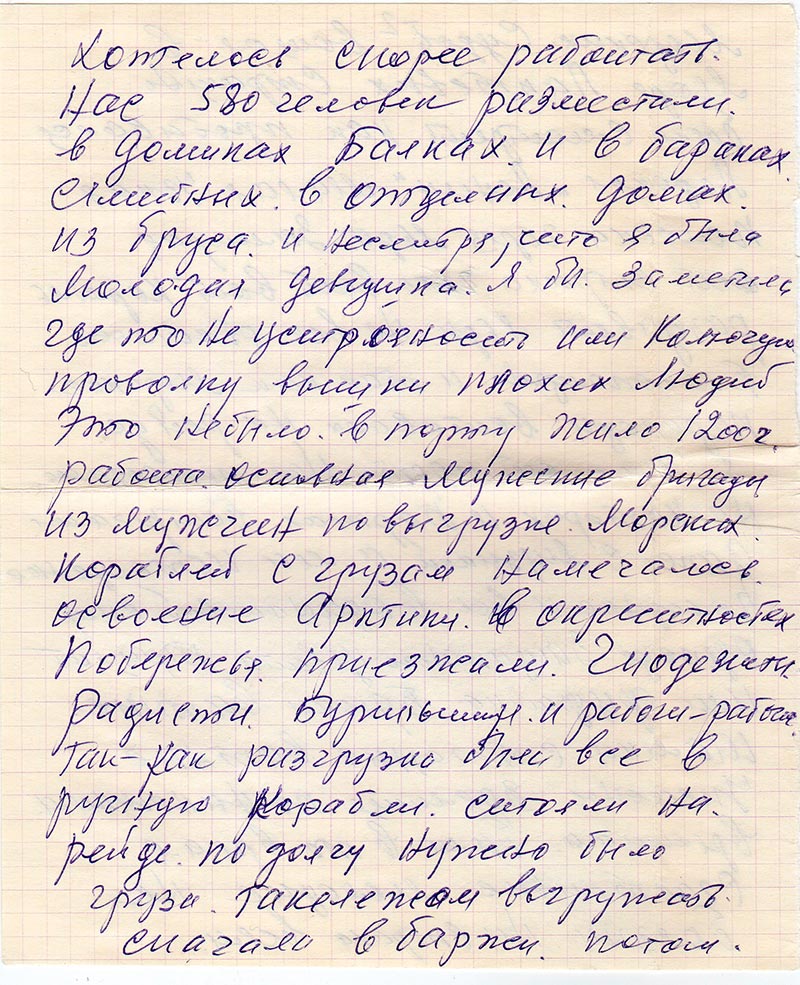 Хотелось скорее работать.
Нас 580 человек разместили.
в домиках Балках. и в бараках.
Семейных. в отдельных. домах.
из бруса. и несмотря, что я была
молодая девушка. Я бы. заметила
где то Не устрояность или Колючую
проволку вышки плохих людей
Это небыло. в порту жило 1200ч.
работа. основная мужские бригады
из мужчин по выгрузке. Морских.
Кораблей с грузам намечалось.
освоение Арктики. в окрестностях
Побережья. приезжали. Гиодезисты.
Радисты. Бурильщики. и работы-работы.
так-как разгрузка была все в
ручную корабли. стояли на.
рейде. по долгу нужно было
груза. такележом выгружать.
сначала в баржи. потом.